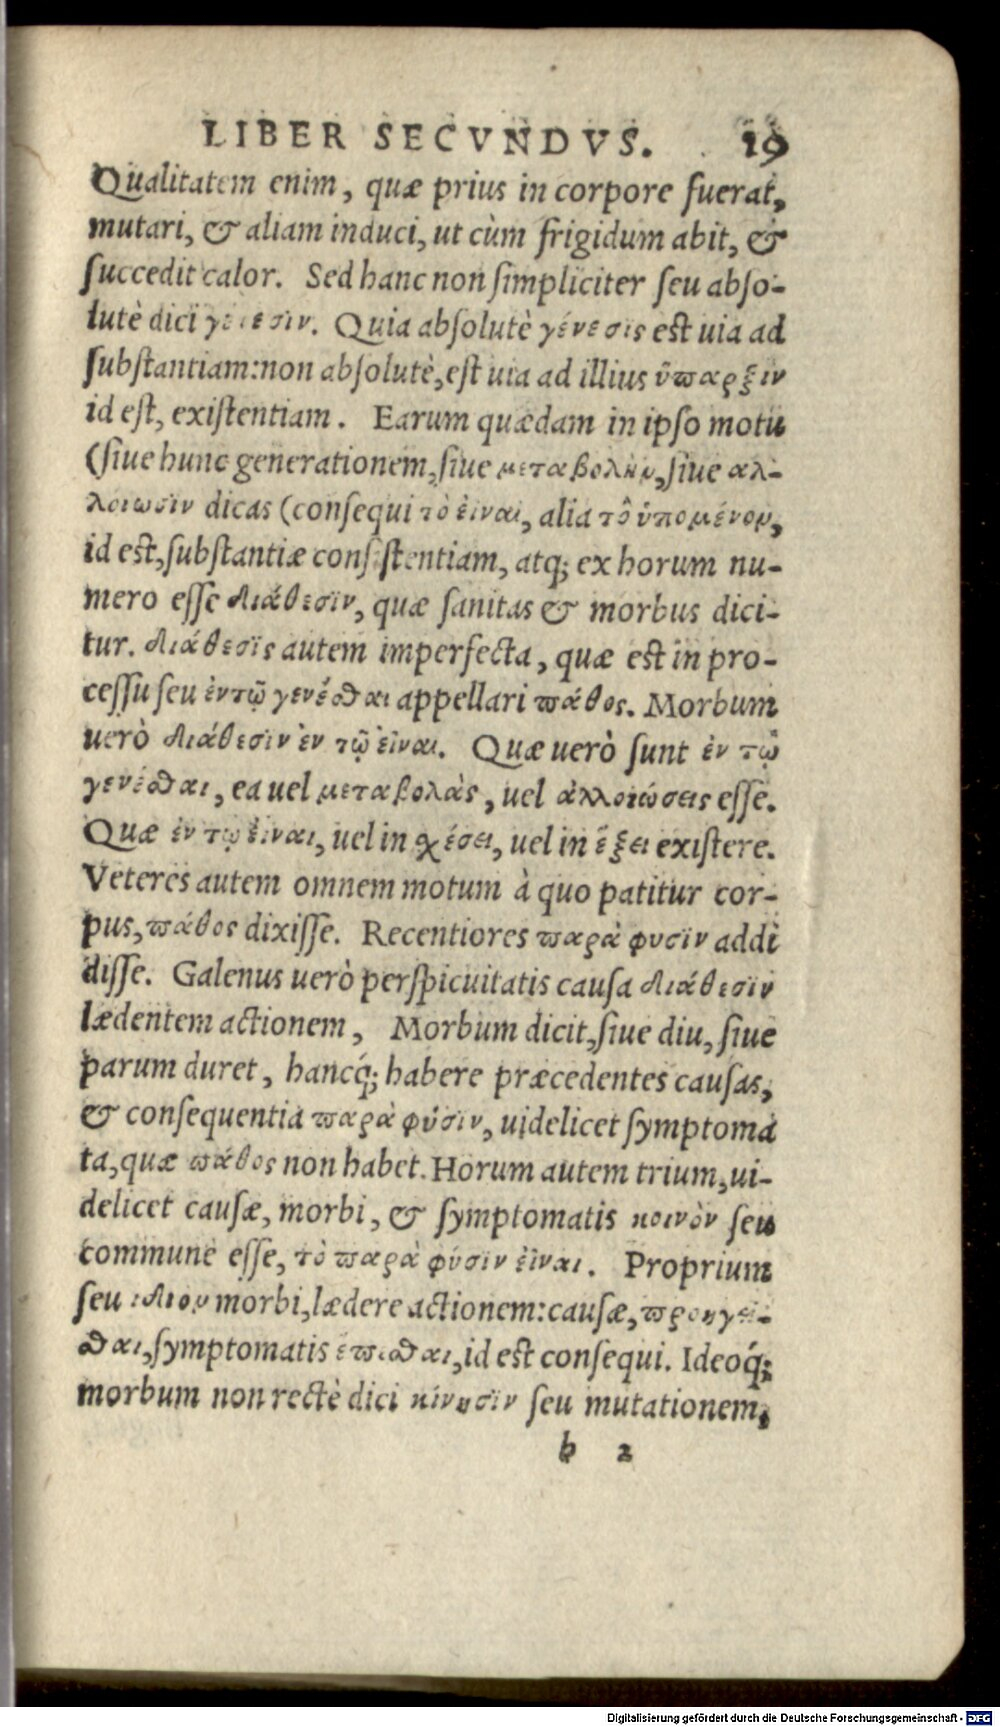 LIBER SECVNDVS. 19
Qualitatem enim, quæ prius in corpore fuerat,
mutari, & aliam induci, ut cùm frigidum abit, &
succedit calor. Sed hanc non simpliciter seu abso-
lutè dici γένεσιν. Quia absolutè γένεσις est uia ad
substantiam: non absolutè, est uia ad illius ὕπαρξιν
id est, existentiam. Earum quædam in ipso motu
(siue hunc generationem, siue μεταβολὴν, siue ἀλ-
λοιωσιν dicas (consequi τὸ εἶναι, alia τὸ ὑπομένον,
id est, substantiæ consistentiam, atq; ex horum nu-
mero esse διάθεσιν, quæ sanitas & morbus dici-
tur. διάθεσις autem imperfecta, quæ est in pro-
cessu seu ἐν τῷ γενέσθαι appellari πάθος. Morbum
uerò διάθεσιν ἐν τῷ εἶναι. Quæ uerò sunt ἐν τῷ
γενέσθαι, ea uel μεταβολὰς, uel ἀλλοιώσεις esse.
Quæ ἐν τῷ εἶναι, uel in σχέσει, uel in ἕξει existere.
Veteres autem omnem motum à quo patitur cor-
pus, πάθος dixisse. Recentiores παρὰ φυσιν addi
disse. Galenus uerò perspicuitatis causa διάθεσιν
lædentem actionem, Morbum dicit, siue diu, siue
parum duret, hancq́; habere præcedentes causas,
& consequentia παρὰ φύσιν, uidelicet symptoma
ta, quæ πάθος non habet. Horum autem trium, ui-
delicet causæ, morbi, & symptomatis κοινὸν seu
commune esse, τὸ παρὰ φύσιν εἶναι. Proprium
seu ἴδιον morbi, lædere actionem: causæ, προηγεῖ-
σθαι, symptomatis ἕπεσθαι, id est consequi. Ideoq́;
morbum non rectè dici κίνησιν seu mutationem,
b 2
Digitalisierung gefördert durch die Deutsche Forschungsgemeinschaft - DFG